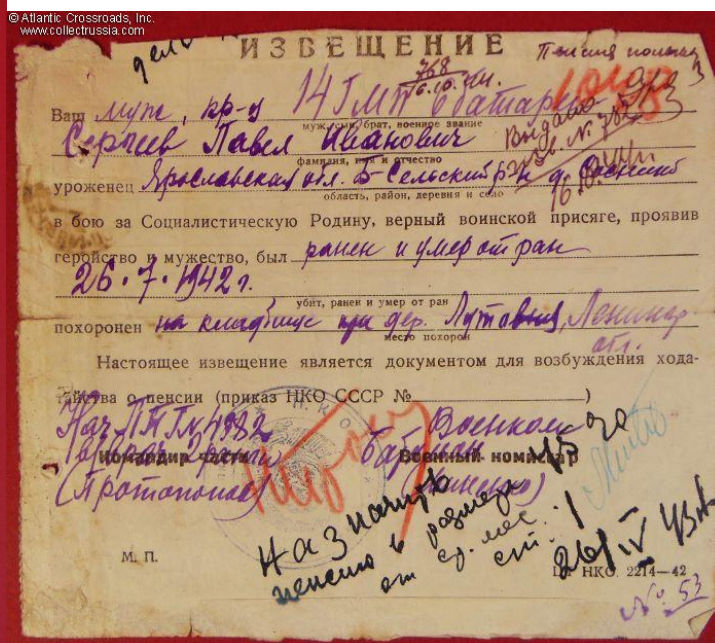 © Atlantic Crossroads, Inc.
www.collectrussia.com
дело
ИЗВЕЩЕНИЕ
Пенсия
768
16.10.44.
Ваш муж, кр-ц 14 ГМП 6 батареи
муж, сын, брат, военное звание
Сергеев Павел Иванович
Выдано
фамилия, имя и отчество
Изв. № 782
уроженец Ярославская обл. Б-Сельский р-н д.
область, район, деревня и село
в бою за Социалистическую Родину, верный воинской присяге, проявив
геройство и мужество, был ранен и умер от ран
26.7.1942 г.
убит, ранен и умер от ран
похоронен на кладбище при дер. Ленингр.
обл.
место похорон
Настоящее извещение является документом для возбуждения хода-
тайства о пенсии (приказ НКО СССР № )
Нач. 4982
Военком
Командир части
Военный комиссар
(Протопопов)
Назначить
пенсию в размере
от ср. мес.
26/IV 43
М. П.
НКО. 2214—42
№ 53